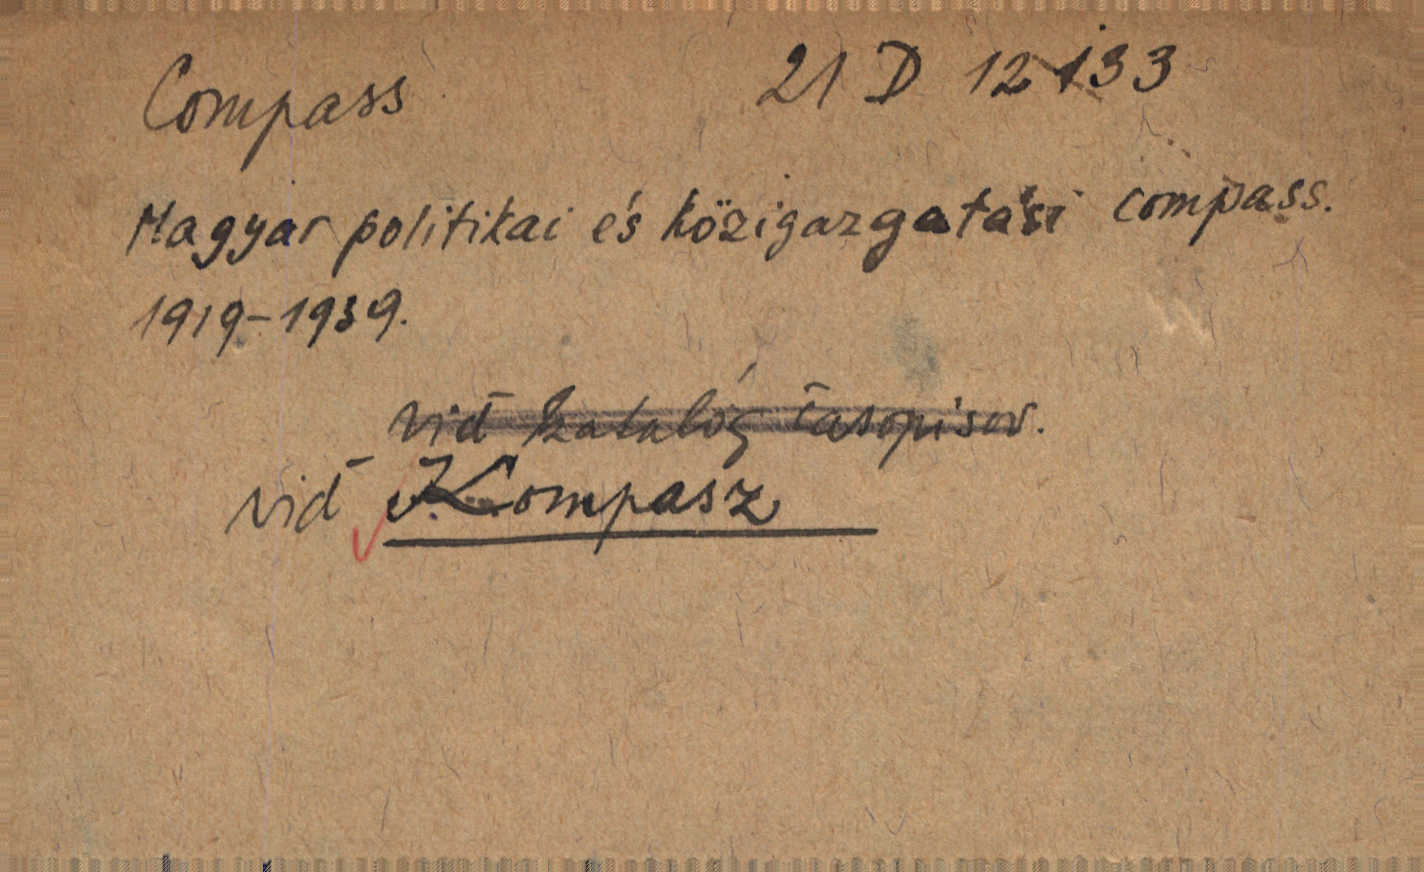 Compass 21 D 12133
Magyar politikai és közigazgatási compass.
1919-1939.
viď katalóg časopisov.
viď Kompasz